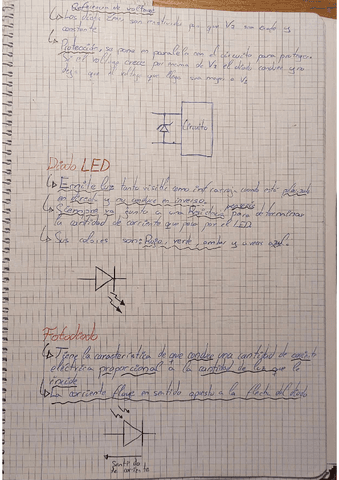 Referencia de voltaje
↳ Los diodos zener
constante
↳ Protección: se pone en paralelo con el circuito para proteger.
Si el voltaje crece por encima de Vz el diodo conduce y no
deja que el voltaje que llega sea mayor a Vz
Circuito
Diodo LED
↳ Emite luz tanto visible como infrarroja cuando está polarizado
en directa y no conduce en inversa.
↳ Siempre va junto a una Resistencia para determinar
la cantidad de corriente que pasa por el LED
↳ Sus colores son: Rojo, verde, ambar y a veces azul.
Fotodiodo
↳ Tiene la característica de que conduce una cantidad de corriente
eléctrica proporcional a la cantidad de luz que lo
incide
↳ La corriente fluye en sentido opuesto a la flecha del diodo
Sentido
de corriente